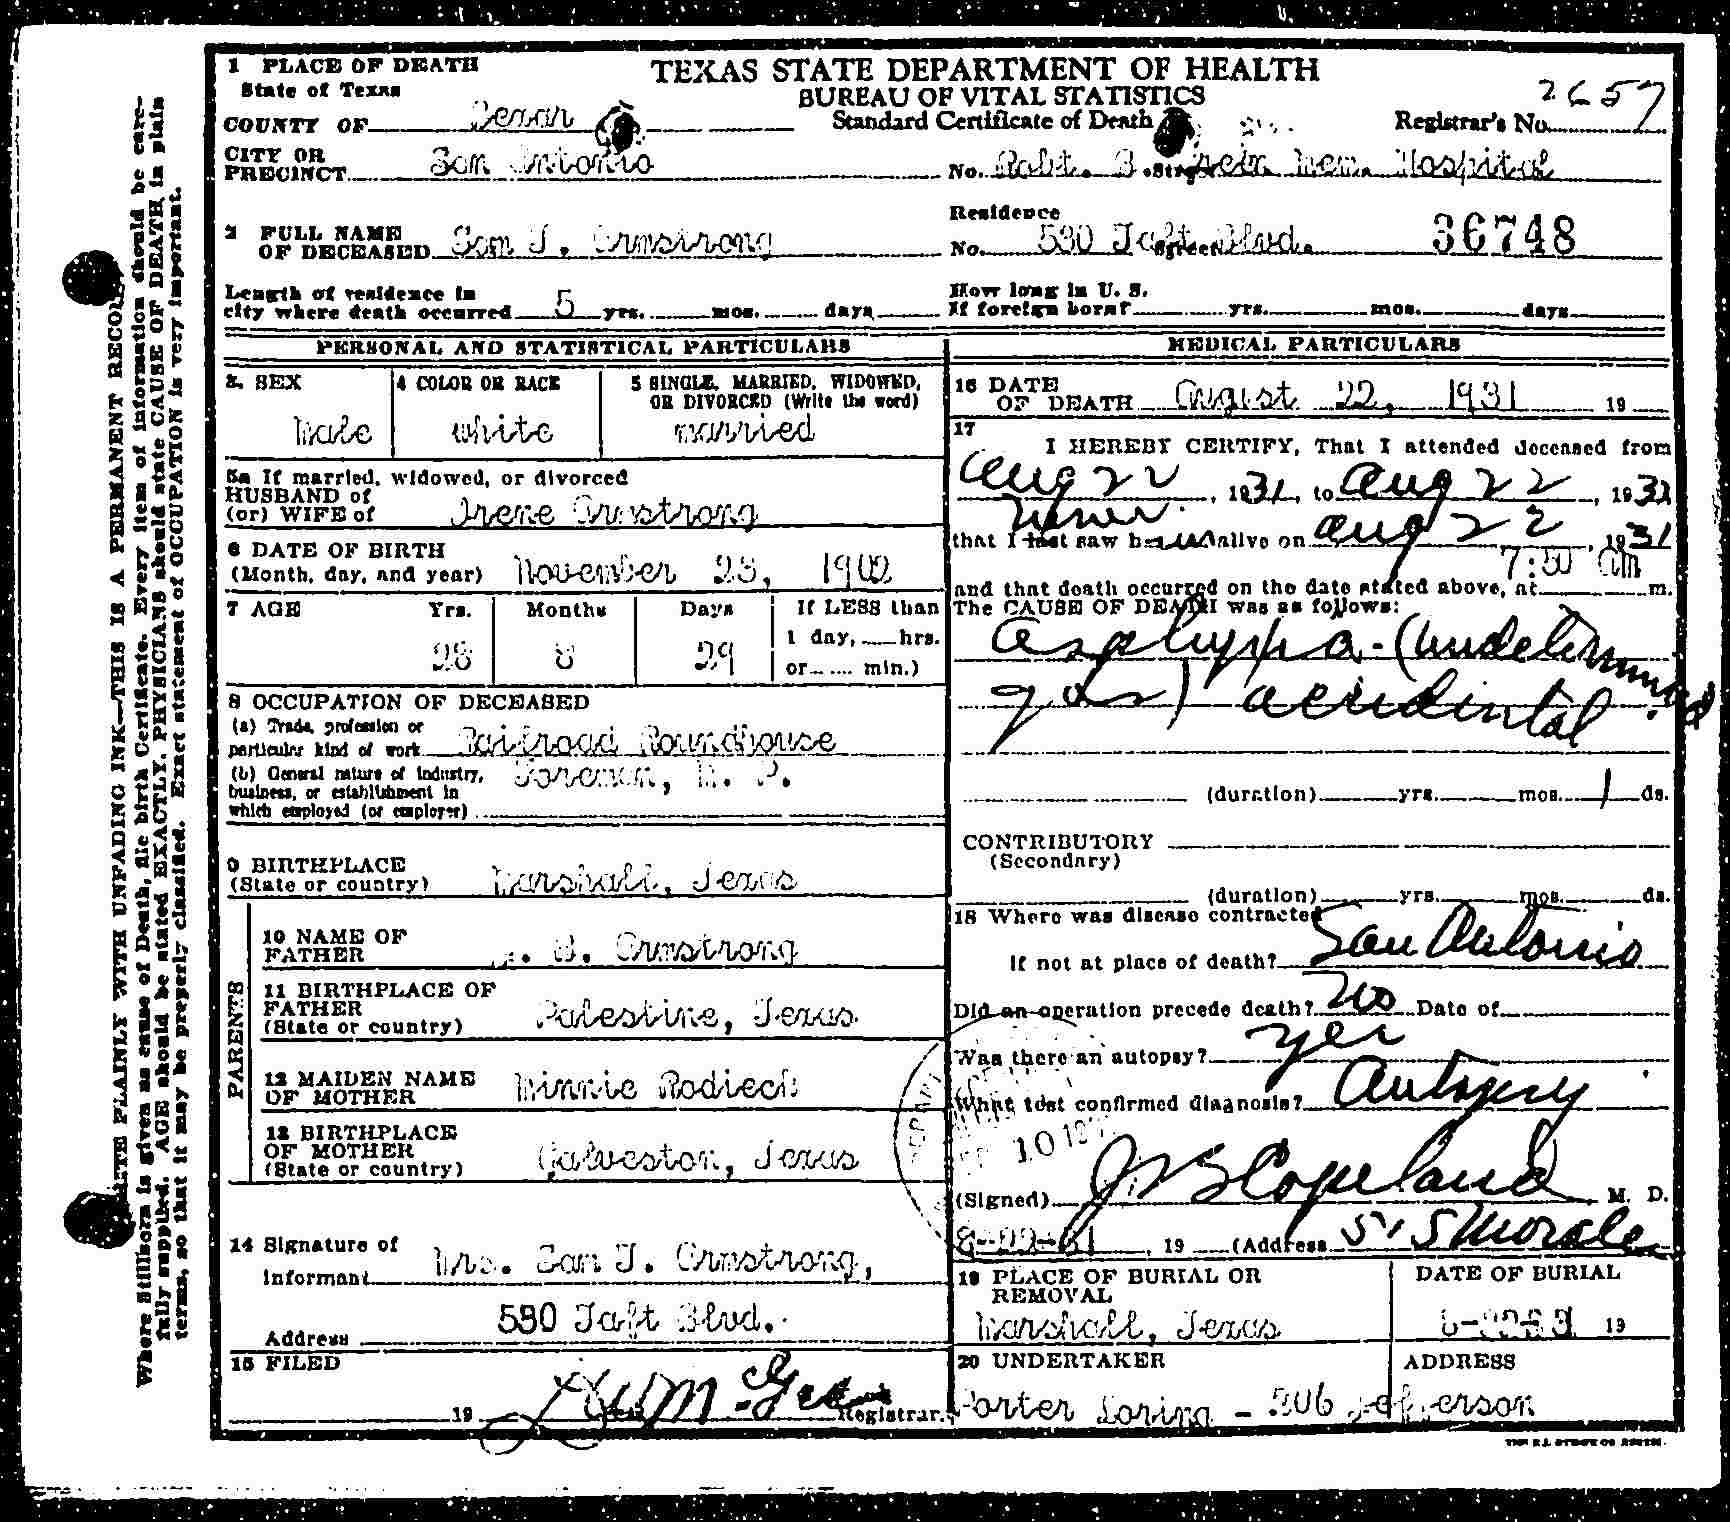 1 PLACE OF DEATH
TEXAS STATE DEPARTMENT OF HEALTH
State of Texas
BUREAU OF VITAL STATISTICS
2657
COUNTY OF Bexar
Standard Certificate of Death
Registrar's No.
CITY OR PRECINCT San Antonio
No. Robt. B. Green Mem. Hospital
Street
2 FULL NAME OF DECEASED Sam T. Armstrong
Residence No. 530 Taft Blvd. Street
36748
Length of residence in city where death occurred 5 yrs. mos. days
How long in U. S. If foreign born? yrs. mos. days
PERSONAL AND STATISTICAL PARTICULARS
3. SEX Male
4 COLOR OR RACE white
5 SINGLE, MARRIED, WIDOWED, OR DIVORCED (Write the word) married
5a If married, widowed, or divorced
HUSBAND of
(or) WIFE of Irene Armstrong
6 DATE OF BIRTH
(Month, day, and year) November 23, 1902
7 AGE Yrs. Months Days
28 8 29
If LESS than 1 day, hrs. or min.)
8 OCCUPATION OF DECEASED
(a) Trade, profession or particular kind of work Railroad Roundhouse
(b) General nature of industry, business, or establishment in which employed (or employer) Foreman, P.
9 BIRTHPLACE
(State or country) Marshall, Texas
PARENTS
10 NAME OF FATHER Armstrong
11 BIRTHPLACE OF FATHER
(State or country) Palestine, Texas
12 MAIDEN NAME OF MOTHER Minnie Rodieck
13 BIRTHPLACE OF MOTHER
(State or country) Galveston, Texas
14 Signature of Informant Mrs. Sam T. Armstrong,
Address 530 Taft Blvd.
15 FILED
19 Registrar.
MEDICAL PARTICULARS
16 DATE OF DEATH August 22, 1931 19
17
I HEREBY CERTIFY, That I attended deceased from
Aug 22, 1931, to Aug 22, 1931
never
that I last saw h alive on Aug 22, 1931
7:30 am
and that death occurred on the date stated above, at m.
The CAUSE OF DEATH was as follows:
Asphyxia - (undetermined
gas) accidental
(duration) yrs. mos. 1 ds.
CONTRIBUTORY
(Secondary)
(duration) yrs. mos. ds.
18 Where was disease contracted
If not at place of death? San Antonio
Did an operation precede death? no Date of
Was there an autopsy? yes
What test confirmed diagnosis? Autopsy
10 19
(Signed) Copeland M. D.
19 (Address Morales
19 PLACE OF BURIAL OR REMOVAL
Marshall, Texas
DATE OF BURIAL
19
20 UNDERTAKER
ADDRESS
Porter Loring - Jefferson
WRITE PLAINLY WITH UNFADING INK—THIS IS A PERMANENT RECORD
Where Stillborn is given as cause of Death, file birth Certificate. Every item of information should be care-
fully supplied. AGE should be stated EXACTLY. PHYSICIANS should state CAUSE OF DEATH in plain
terms, so that it may be properly classified. Exact statement of OCCUPATION is very important.